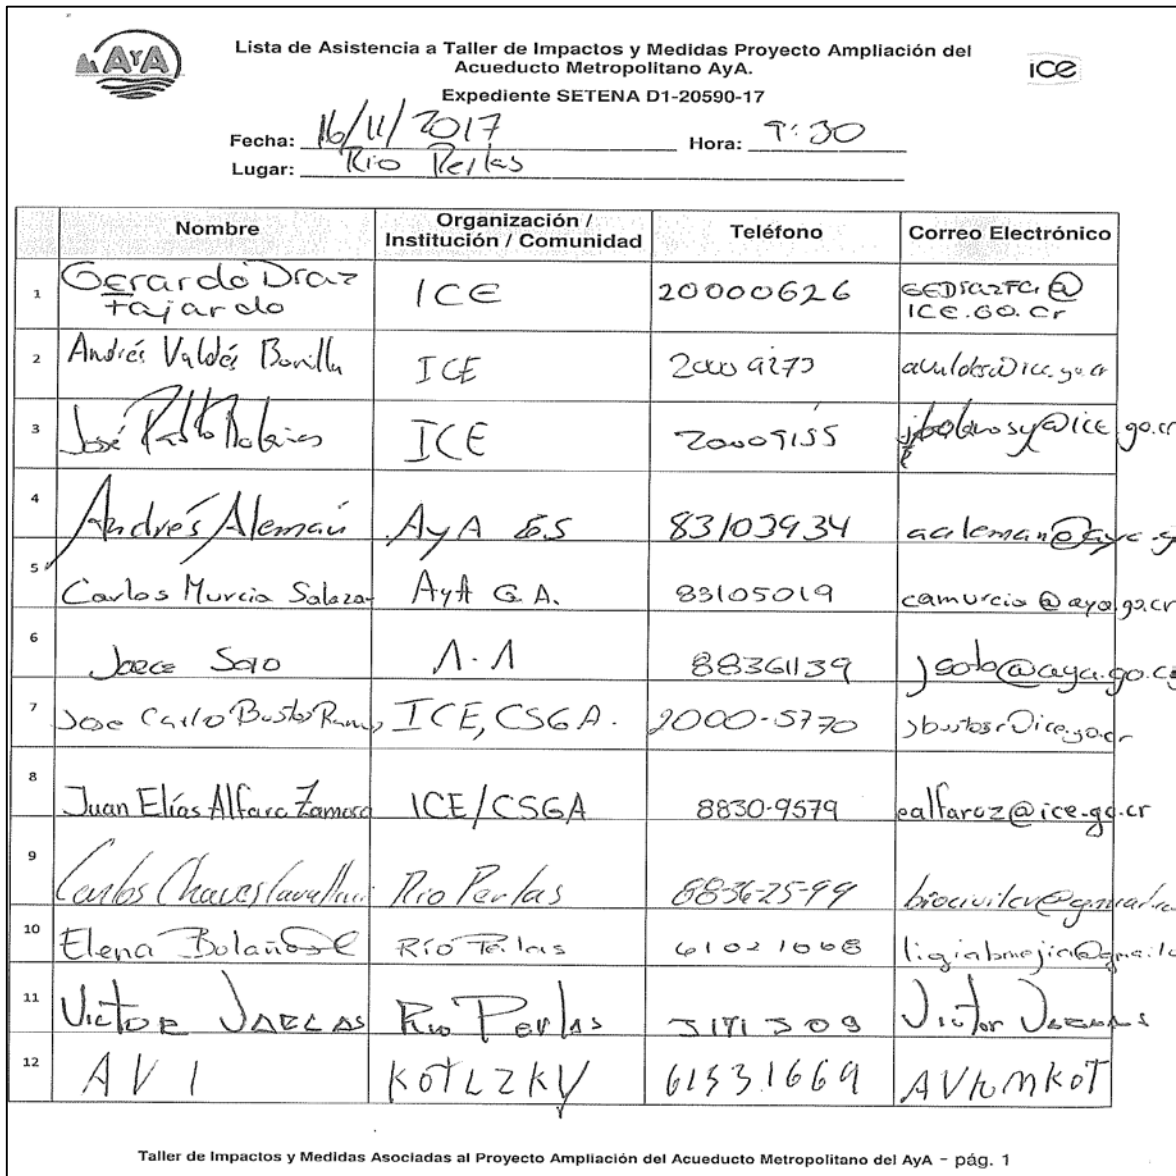 AyA
Lista de Asistencia a Taller de Impactos y Medidas Proyecto Ampliación del
Acueducto Metropolitano AyA.
ice
Expediente SETENA D1-20590-17
Fecha: 16/11/2017 Hora: 9:30
Lugar: Rio Perlas
Nombre Organización / Institución / Comunidad Teléfono Correo Electrónico
1 Gerardo Díaz Fajardo ICE 20000626
ICE.GO.Cr
2 Andrés Valdés Bonilla ICE
3 José Pablo ICE 20009155 go.cr
4 Andrés Alemán AyA 83103934
5 Carlos Murcia Salazar AyA G.A. 83105019 camurcia@aya.go.cr
6 Soto 88361139 jsoto@aya.go.c
7 Jose Carlo ICE, CSGA. 2000-5770 jbustosr@ice.go.cr
8 Juan Elías Alfaro Zamora ICE/CSGA 8830-9579 ealfaroz@ice.go.cr
9 Carlos Chaves Rio Perlas 8836-25-99
10 Elena Bolaños Río Perlas 61021068
11 Victor Vargas Rio Perlas Victor Vargas
12 AVI KOTLZKY 61531669 AVITOMKOT
Taller de Impactos y Medidas Asociadas al Proyecto Ampliación del Acueducto Metropolitano del AyA - pág. 1